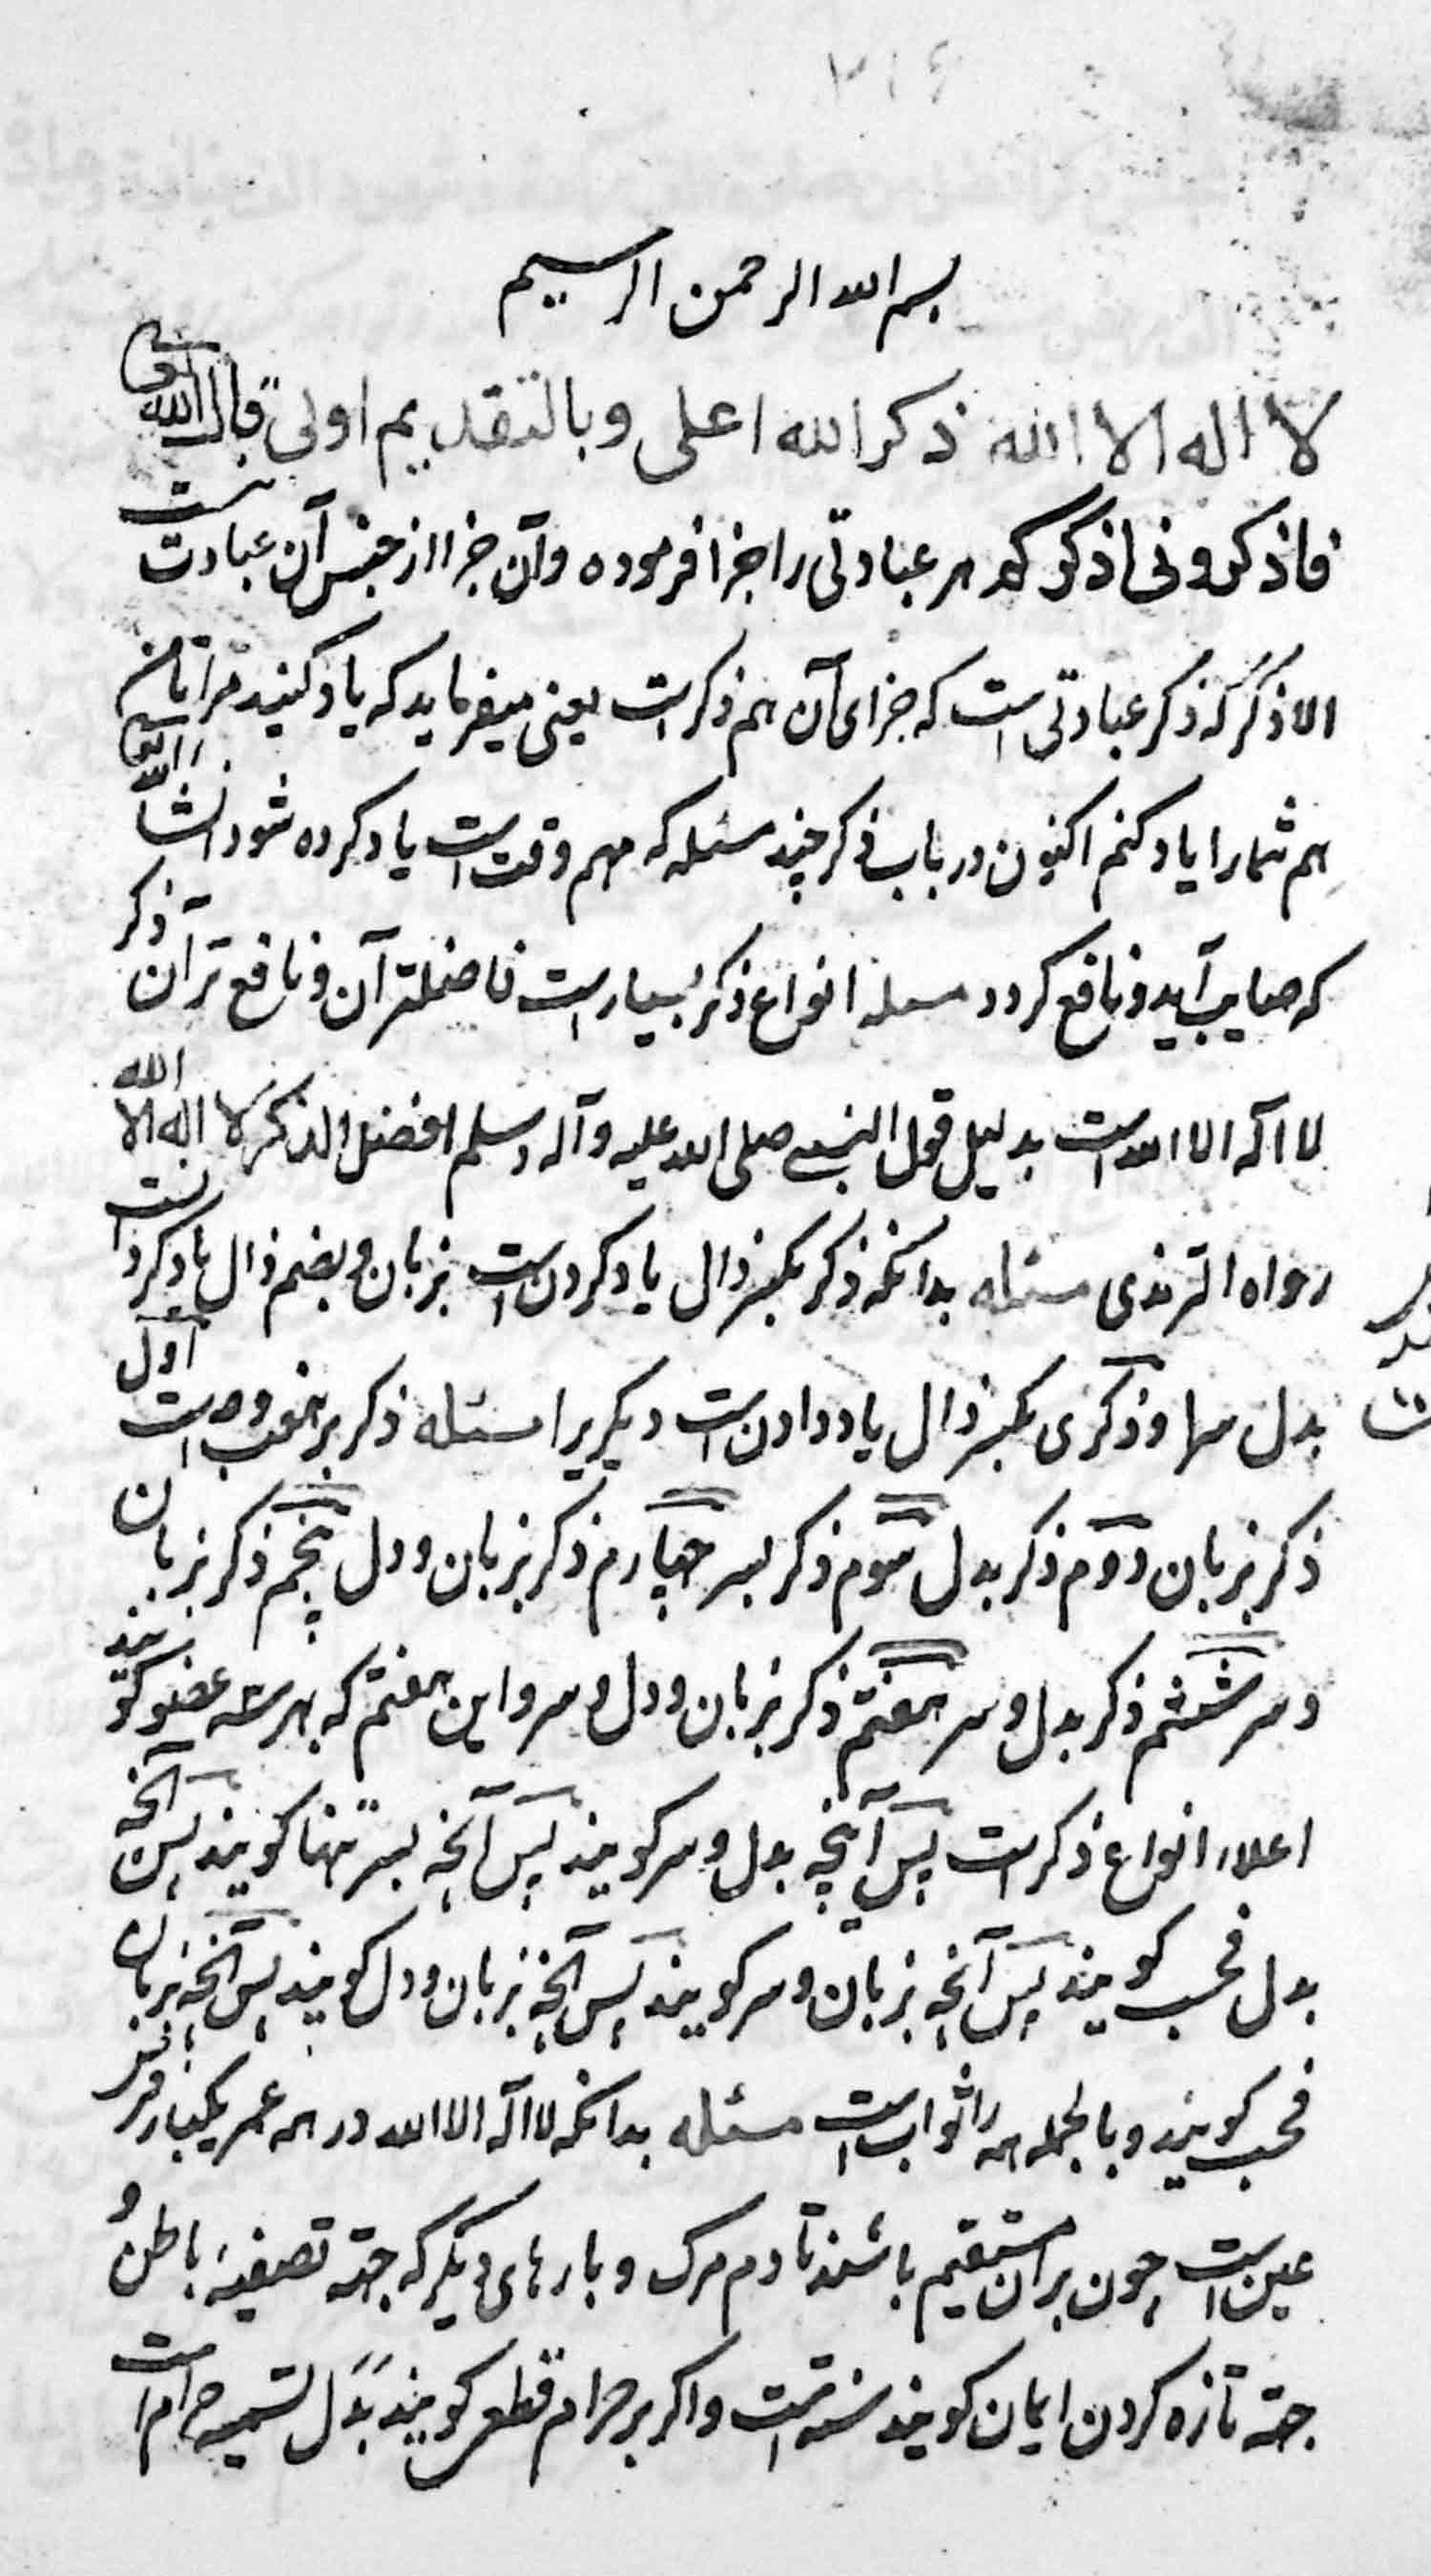 بسم الله الرحمن الرحیم
لا اله الا الله ذکر الله اعلی و بالتقدیم اولی قال الله تعالی
فاذکرونی اذکرکم هر عبادتی را جزا فرموده و آن جزا از جنس آن عبادت نیست
الا ذکر که ذکر عبادتی است که جزای آن هم ذکرست یعنی میفرماید که یاد کنید مرا تا من
هم شما را یاد کنم اکنون در باب ذکر چند مسئله که مهم وقتست یاد کرده شود انشاالله تعالی
که صایب آید و نافع کردد مسله انواع ذکر بسیارست فاضلتر آن و نافع تر آن ذکر
لا اله الا الله است بدلیل قول النبی صلی الله علیه و آله وسلم افضل الذکر لا اله الا الله
رواه الترمذی مسئله بدانکه ذکر بکسر ذال یاد کردنست بزبان و بضم ذال یاد کردنست
بدل و ذکری بکسر ذال یاد دادنست دیکریرا مسئله ذکر بر وجوهست اول
ذکر بزبان دوم ذکر بدل سوم ذکر بسر چهارم ذکر بزبان و دل پنجم ذکر بزبان
و سر ششم ذکر بدل و سر هفتم ذکر بزبان و دل و سر و این هفتم که بهر سه عضو کویند
اعلاء انواع ذکرست پس آنچه بدل و سر کویند پس آنچه بسر تنها کویند پس آنچه
بدل فحسب کویند پس آنچه بزبان و سر کویند پس آنچه بزبان و دل کویند پس آنچه بزبان
فحسب کویند و بالجمله همه را ثوابست مسئله بدانکه لا اله الا الله در همه عمر یکبار فرض
عین است چون بر آن مستقیم باشند تا دم مرک و بارهای دیکر که جهة تصفیهٔ باطن و
جهة تازه کردن ایمان کویند سنتست و اکر بر حرام قطعی کویند بدل تسمیه حرام است